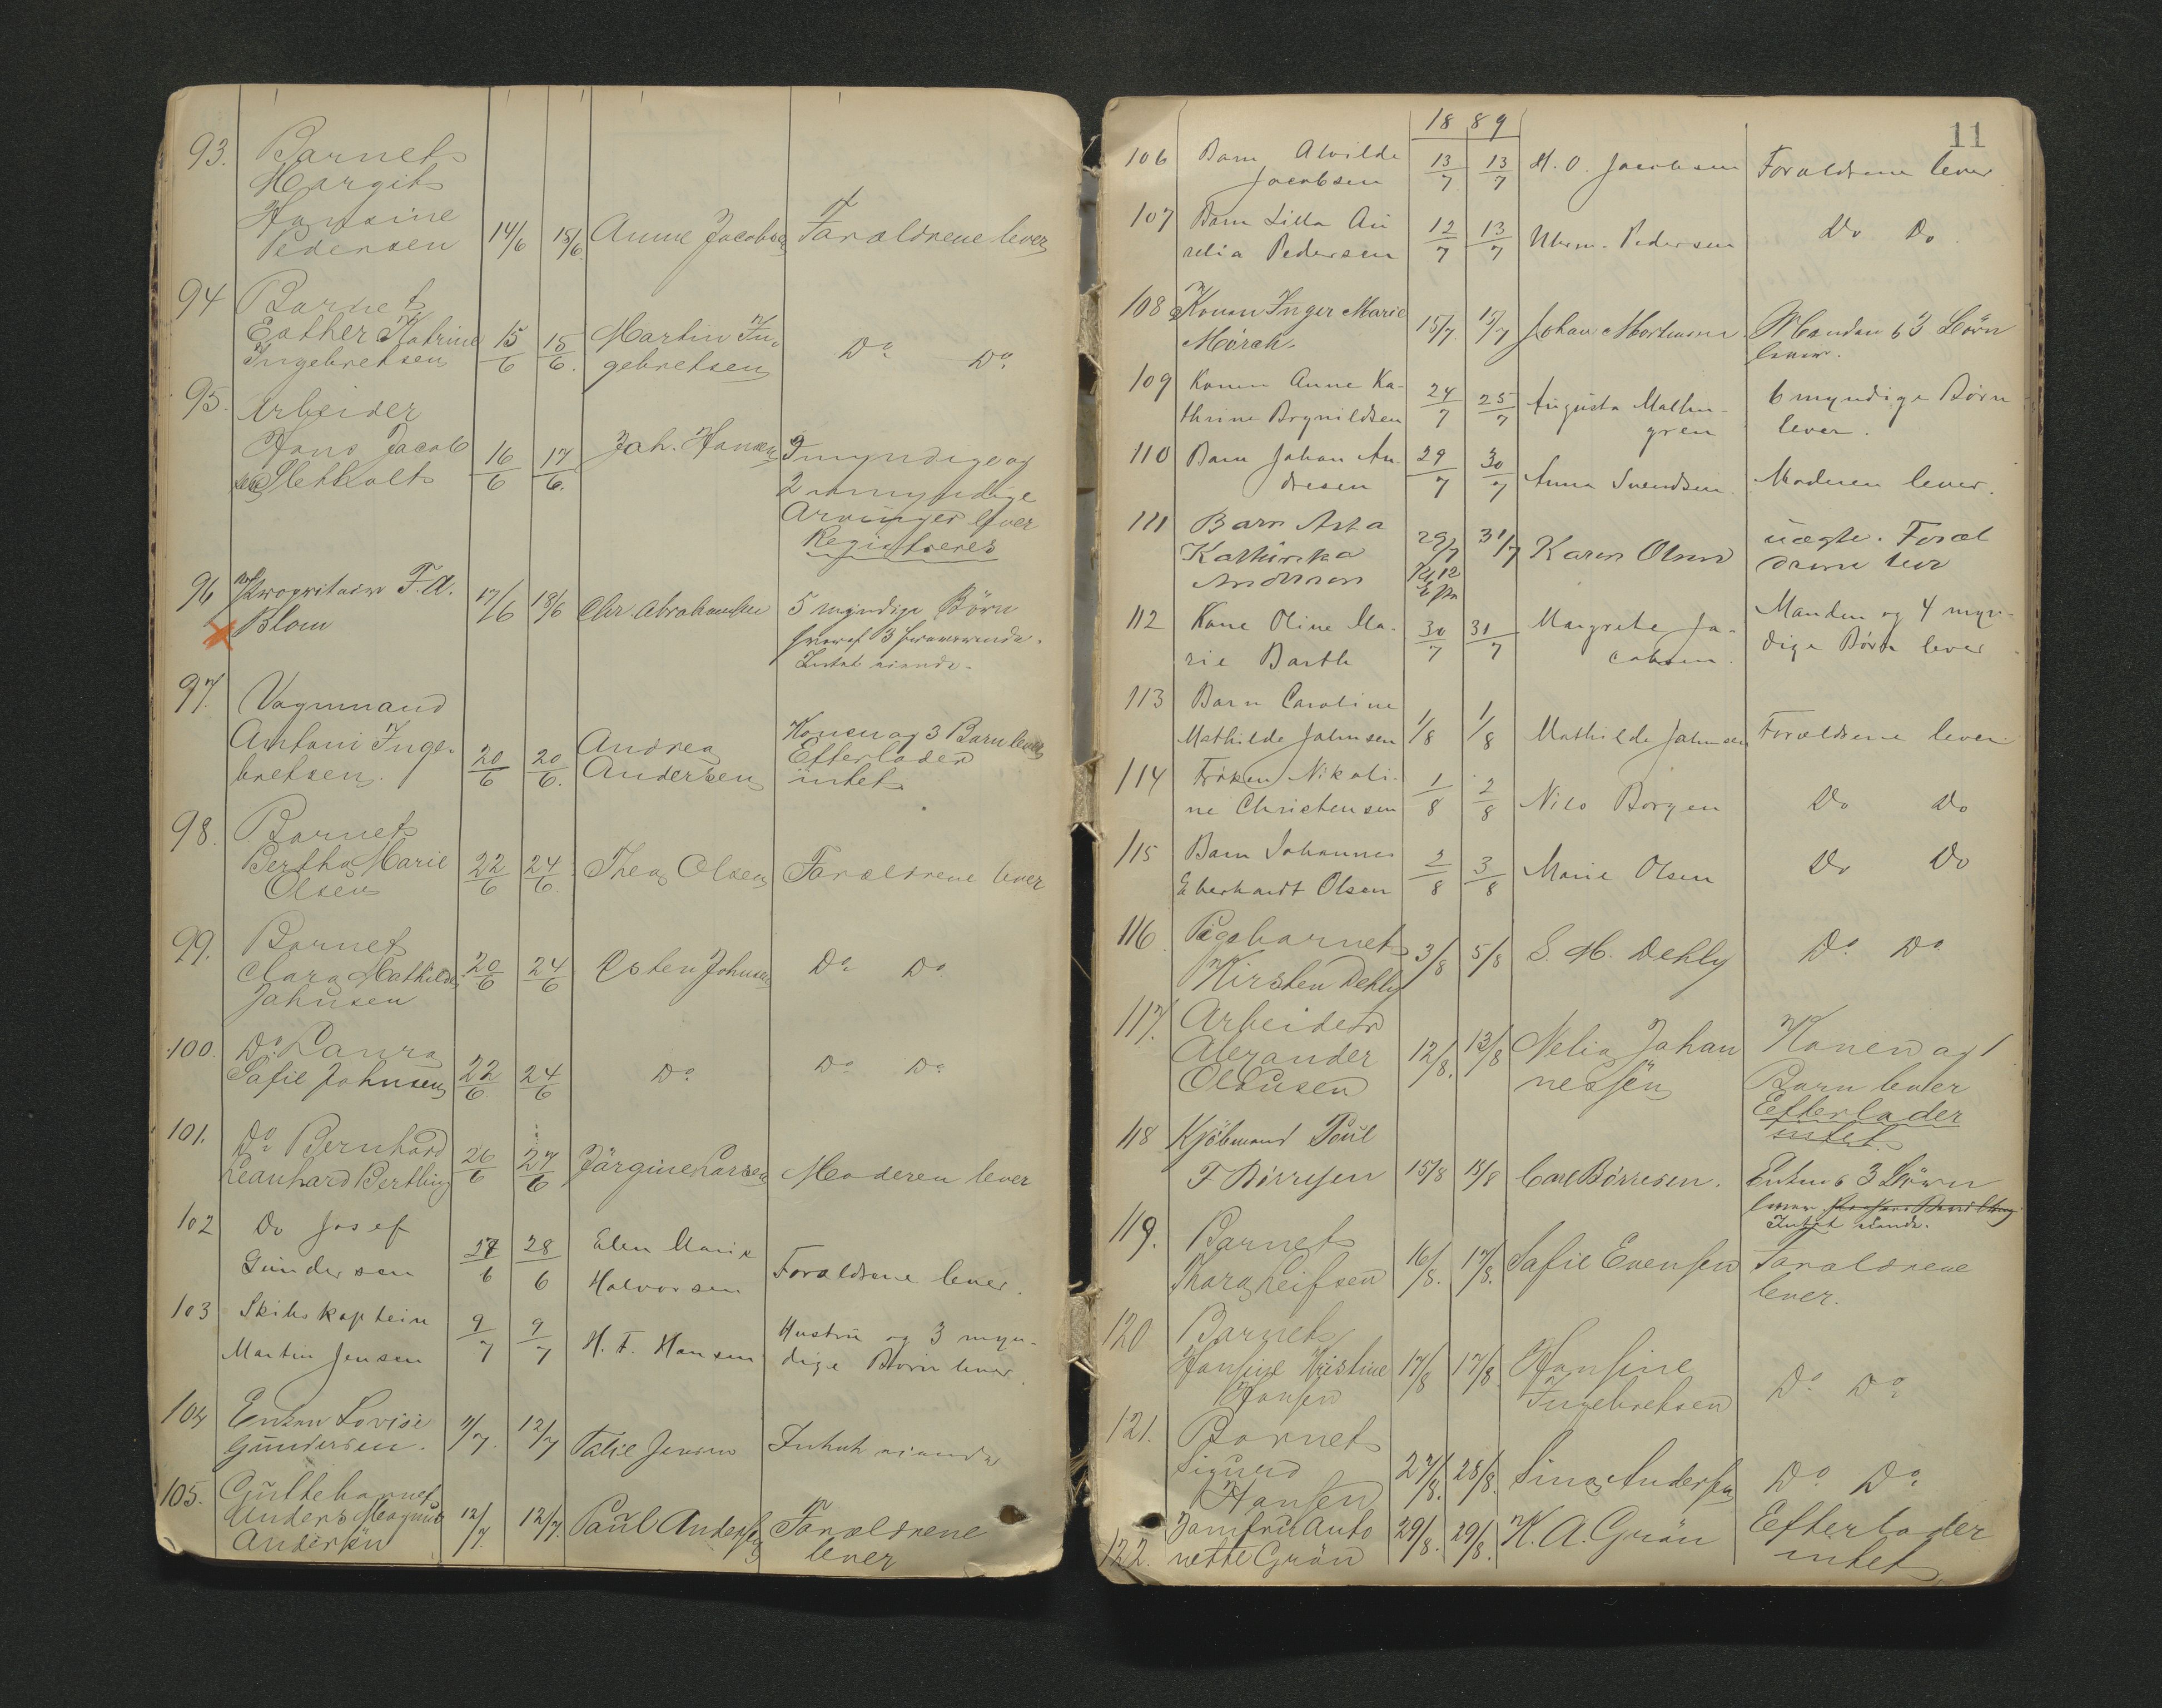 93. Barnet
Margit
Hansine
Pedersen 14/6 15/6 Anne Jacobsen Forældrene lever
94 Barnet
Esther Katrine 15/6 15/6. Martin In-
Ingebretsen gebretsen Do Do
95. Arbeider
Hans Jacob 16/6 17/6. Joh. Hansen 9 myndige og
sen Sletholt 2 umyndige
Arvinger lever
Registreres
96 Proprietair F. A. 17/6 18/6 Chr. Abrahamsen 5 myndige Börn
Blom hvoraf 3 fraværende.
Intet eiende.
97. Vognmand
Antoni Inge- 20/6 20/6. Andrea Konen og 3 Barn lever
bretsen. Andersen Efterlader
intet
98. Barnet
Bertha Marie 22/6 24/6 Thea Olsen Forældrene lever
Olsen
99. Barnet
Clara Mathilde 20/6 24/6 Osten Johnsen Do Do
Johnsen
100. Do Laura
Sofie Johnsen 22/6 24/6 Do Do Do
101. Do Bernhard
Leonhard Bertling 26/6 27/6 Jörgine Larsen Moderen lever
102 Do Josef
Gundersen 27/6 28/6 Elen Marie
Halvorsen Forældrene lever.
103 Skibskaptein
Martin Jensen 9/7 9/7 H. F. Hansen Hustru og 3 myn-
dige Börn lever.
104 Enken Lovise
Gundersen. 11/7. 12/7 Talie Jensen Intet eiende
105. Guttebarnet
Anders Magnus 12/7. 12/7. Paul Andersen Forældrene
Andersen lever
11
18 89
106 Barn Alvilde
Jacobsen 13/7 13/7 H. O. Jacobsen Forældrene lever
107 Barn Lilla Au
relia Pedersen 12/7 13/7 Uhrm. Pedersen Do Do.
108 Konen Inger Marie
Mörch. 15/7. 17/7 Johan Mortensen. Manden & 3 Börn
lever.
109 Konen Anne Ka-
thrine Brynildsen 24/7 25/7 Augusta Malhn-
gren 6 myndige Börn
lever.
110 Barn Johan An-
dresen 29/7 30/7 Anna Svendsen Moderen lever.
111 Barn Asta
Kathinka 29/7 31/7 Karen Olsen uægte. Foræl
Andersen Kl. 12 drene lever
112 Kone Oline Ma-
rie Barth 30/7 31/7 Margrete Ja-
cobsen. Manden og 4 myn-
dige Börn lever
113 Barn Caroline
Mathilde Johnsen 1/8 1/8 Mathilde Johnsen Forældrene lever
114 Fröken Nikoli-
ne Christensen 1/8 2/8 Nilo Borgen Do Do
115 Barn Johannes
Eberhardt Olsen 2/8 3/8 Marie Olsen Do Do
116. Pigebarnet
Kirsten Dehly 3/8 5/8 S. M. Dehly Do Do
117. Arbeider
Alexander 12/8. 13/8 Nelia Johan Konen og 1
Olausen nessen Barn lever
Efterlader
intet.
118 Kjöbmand Poul
F Börresen 15/8 15/8 Carl Börresen. Enken & 3 Börn
lever
Intet eiende.
119. Barnet
Thora Leifsen 16/8. 17/8. Sofie Evensen Forældrene
lever.
120 Barnet
Hansine Kristine 17/8 17/8. Hansine
Hansen Ingebretsen Do Do
121. Barnet
Sigurd 27/8. 28/8. Sina Andersen Do Do
Hansen
122. Jomfru Anto 29/8. 29/8. K. A. Grön Efterlader
nette Grön intet